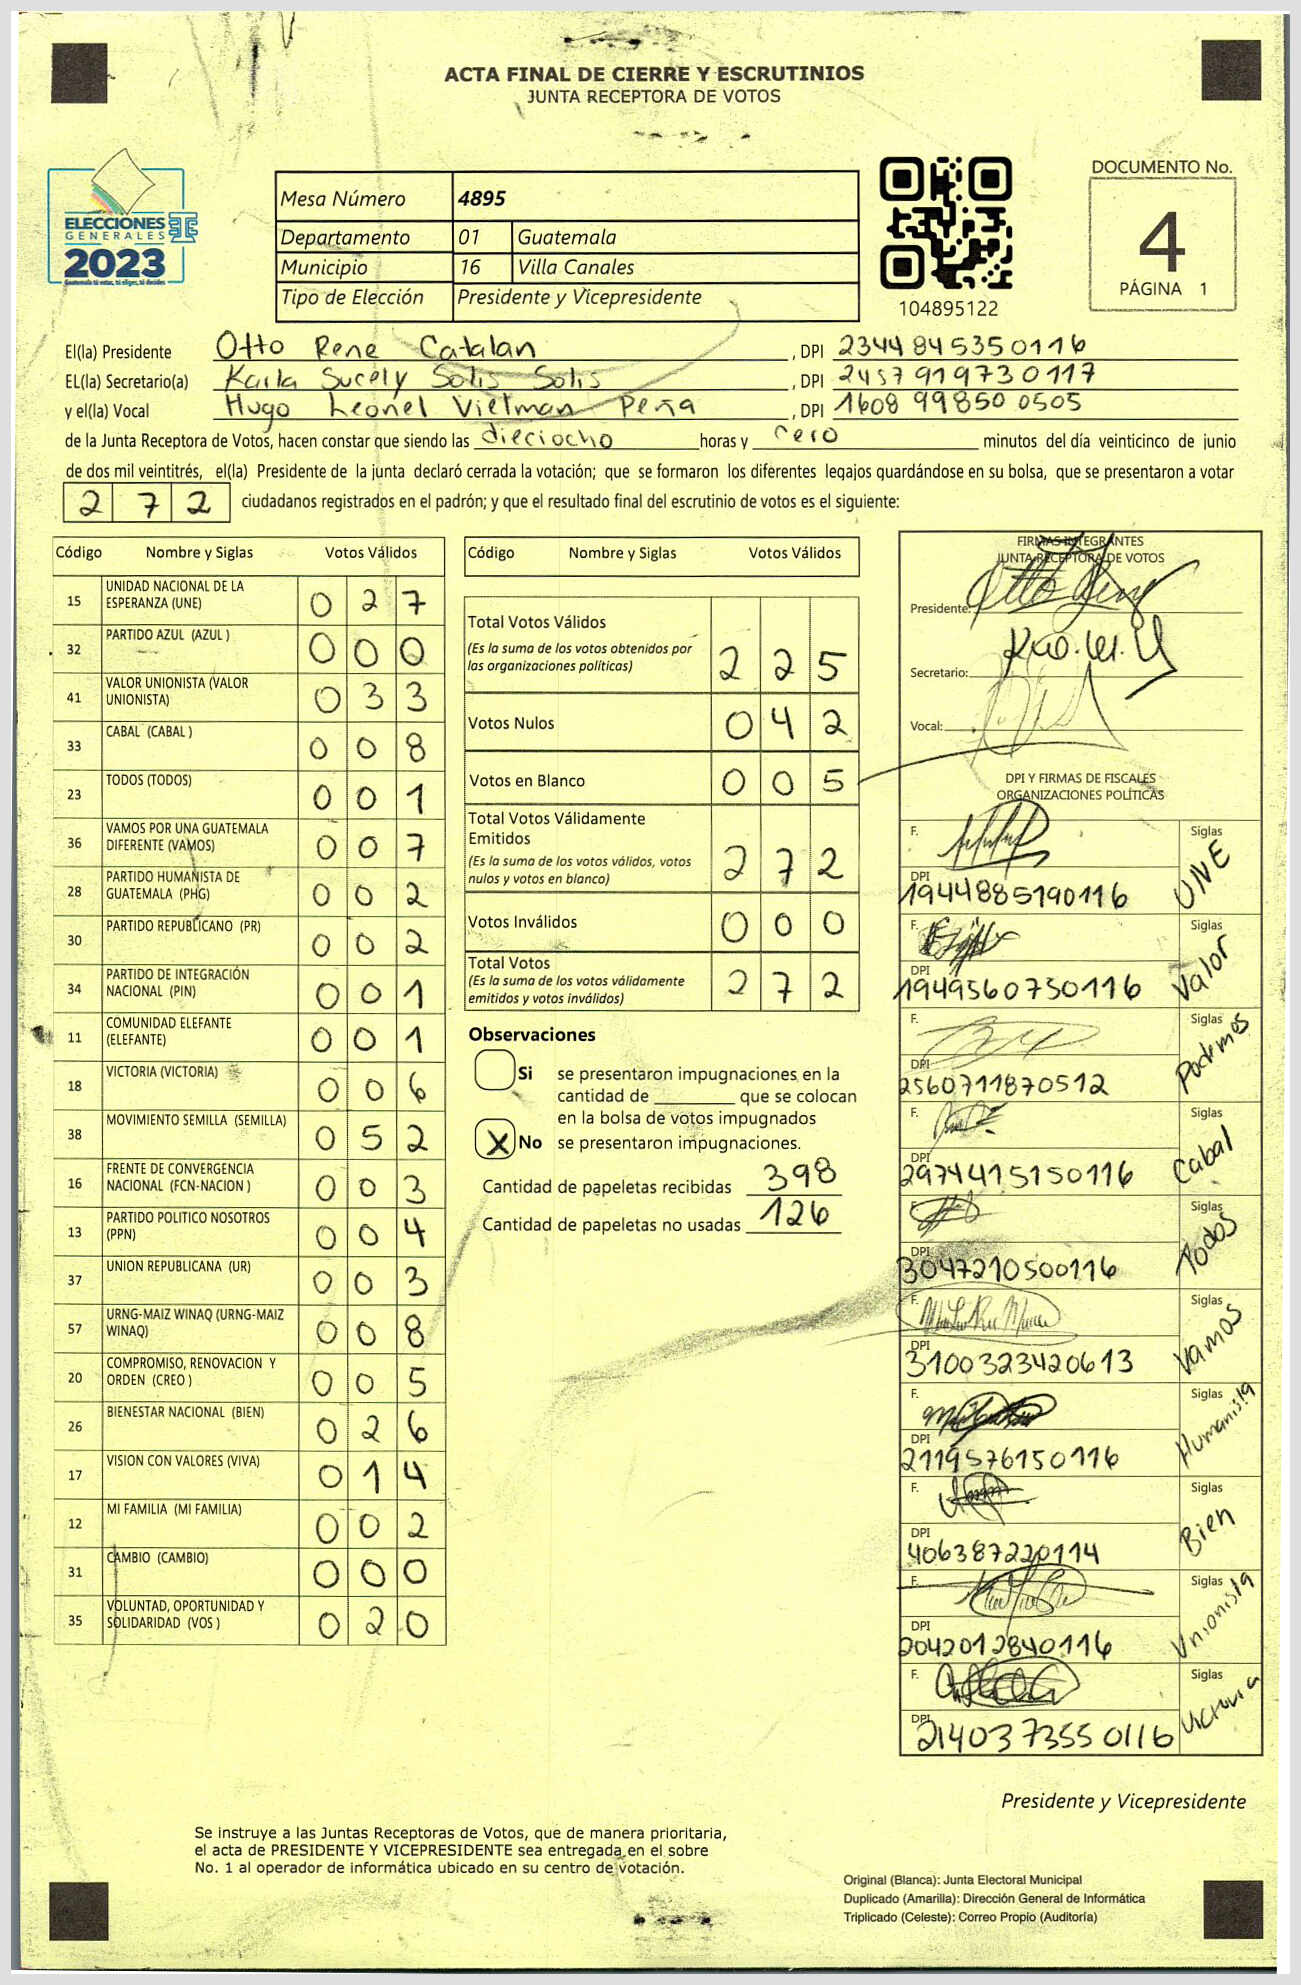 ACTA FINAL DE CIERRE Y ESCRUTINIOS
JUNTA RECEPTORA DE VOTOS
ELECCIONES
GENERALES
2023
Guatemala tú votas, tú eliges, tú decides
Mesa Número 4895
Departamento 01 Guatemala
Municipio 16 Villa Canales
Tipo de Elección Presidente y Vicepresidente
104895122
DOCUMENTO No.
4
PÁGINA 1
El(la) Presidente Otto Rene Catalan, DPI 2344845350116
EL(la) Secretario(a) Karla Sucely Solis Solis, DPI 2457919730117
y el(la) Vocal Hugo Leonel Vietman Peña, DPI 1608 99850 0505
de la Junta Receptora de Votos, hacen constar que siendo las dieciocho horas y cero minutos del día veinticinco de junio
de dos mil veintitrés, el(la) Presidente de la junta declaró cerrada la votación; que se formaron los diferentes legajos quardándose en su bolsa, que se presentaron a votar
2 7 2 ciudadanos registrados en el padrón; y que el resultado final del escrutinio de votos es el siguiente:
Código Nombre y Siglas Votos Válidos
15 UNIDAD NACIONAL DE LA
ESPERANZA (UNE) 0 2 7
32 PARTIDO AZUL (AZUL ) 0 0 0
41 VALOR UNIONISTA (VALOR
UNIONISTA) 0 3 3
33 CABAL (CABAL ) 0 0 8
23 TODOS (TODOS) 0 0 1
36 VAMOS POR UNA GUATEMALA
DIFERENTE (VAMOS) 0 0 7
28 PARTIDO HUMANISTA DE
GUATEMALA (PHG) 0 0 2
30 PARTIDO REPUBLICANO (PR) 0 0 2
34 PARTIDO DE INTEGRACIÓN
NACIONAL (PIN) 0 0 1
11 COMUNIDAD ELEFANTE
(ELEFANTE) 0 0 1
18 VICTORIA (VICTORIA) 0 0 6
38 MOVIMIENTO SEMILLA (SEMILLA) 0 5 2
16 FRENTE DE CONVERGENCIA
NACIONAL (FCN-NACION ) 0 0 3
13 PARTIDO POLITICO NOSOTROS
(PPN) 0 0 4
37 UNION REPUBLICANA (UR) 0 0 3
57 URNG-MAIZ WINAQ (URNG-MAIZ
WINAQ) 0 0 8
20 COMPROMISO, RENOVACION Y
ORDEN (CREO ) 0 0 5
26 BIENESTAR NACIONAL (BIEN) 0 2 6
17 VISION CON VALORES (VIVA) 0 1 4
12 MI FAMILIA (MI FAMILIA) 0 0 2
31 CAMBIO (CAMBIO) 0 0 0
35 VOLUNTAD, OPORTUNIDAD Y
SOLIDARIDAD (VOS ) 0 2 0
Código Nombre y Siglas Votos Válidos
Total Votos Válidos
(Es la suma de los votos obtenidos por
las organizaciones políticas) 2 2 5
Votos Nulos 0 4 2
Votos en Blanco 0 0 5
Total Votos Válidamente
Emitidos
(Es la suma de los votos válidos, votos
nulos y votos en blanco) 2 7 2
Votos Inválidos 0 0 0
Total Votos
(Es la suma de los votos válidamente
emitidos y votos inválidos) 2 7 2
Observaciones
Si se presentaron impugnaciones en la
cantidad de ________ que se colocan
en la bolsa de votos impugnados
X No se presentaron impugnaciones.
Cantidad de papeletas recibidas 398
Cantidad de papeletas no usadas 126
FIRMAS INTEGRANTES
JUNTA RECEPTORA DE VOTOS
Presidente:
Secretario:
Vocal:
DPI Y FIRMAS DE FISCALES
ORGANIZACIONES POLÍTICAS
F. Siglas UNE
DPI 1944885190116
F. Siglas Valor
DPI 1949560730116
F. Siglas Podemos
DPI 2560711870512
F. Siglas Cabal
DPI 2974415150116
F. Siglas Todos
DPI 3047210500116
F. Siglas Vamos
DPI 3100323420613
F. Siglas Humanista
DPI 2119576150116
F. Siglas Bien
DPI 406387220114
F. Siglas Unionista
DPI 2042012840116
F. Siglas Victoria
DPI 2140373550116
Presidente y Vicepresidente
Se instruye a las Juntas Receptoras de Votos, que de manera prioritaria,
el acta de PRESIDENTE Y VICEPRESIDENTE sea entregada en el sobre
No. 1 al operador de informática ubicado en su centro de votación.
Original (Blanca): Junta Electoral Municipal
Duplicado (Amarilla): Dirección General de Informática
Triplicado (Celeste): Correo Propio (Auditoría)